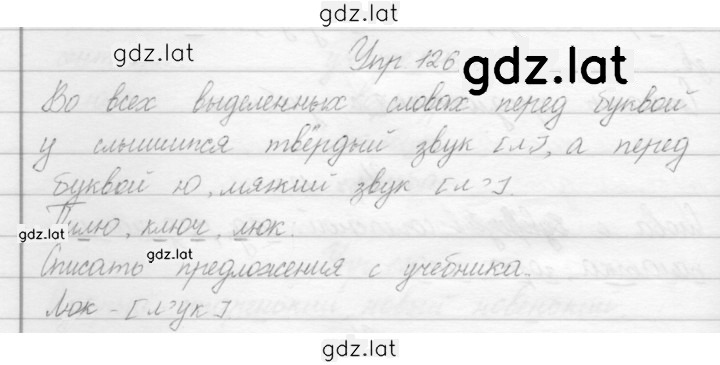 gdz.lat
gdz.lat
Упр 126
gdz.lat
Во всех выделенных словах перед буквой
у слышится твёрдый звук [л], а перед
буквой ю, мягкий звук [л'].
Пилю, ключ, люк.
gdz.lat
gdz.lat
Списать предложения с учебника.
Люк - [л'ук]
gdz.lat